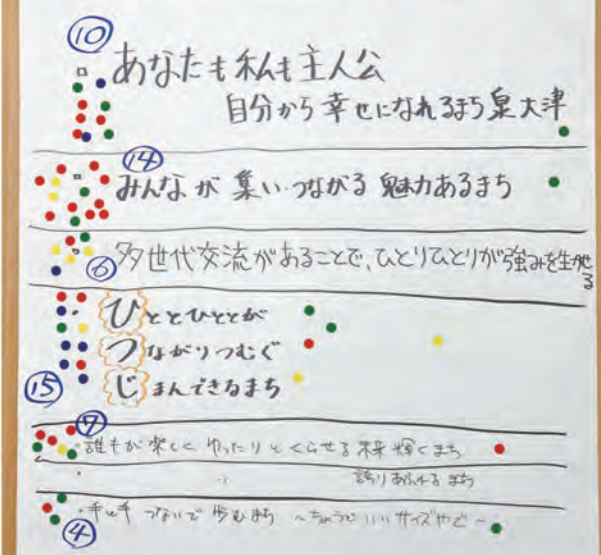 ⑩
あなたも私も主人公
自分から幸せになれるまち泉大津
⑭
みんなが集い・つながる 魅力あるまち
⑥
多世代交流があることで、ひとりひとりが強みを生かせる
ひととひととが
つながりつむぐ
じまんできるまち
⑮
⑦
・誰もが楽しくゆったりとくらせる未来輝くまち
誇りあふれるまち
④
・手と手つないで歩むまち ～ちょうどいいサイズやで～